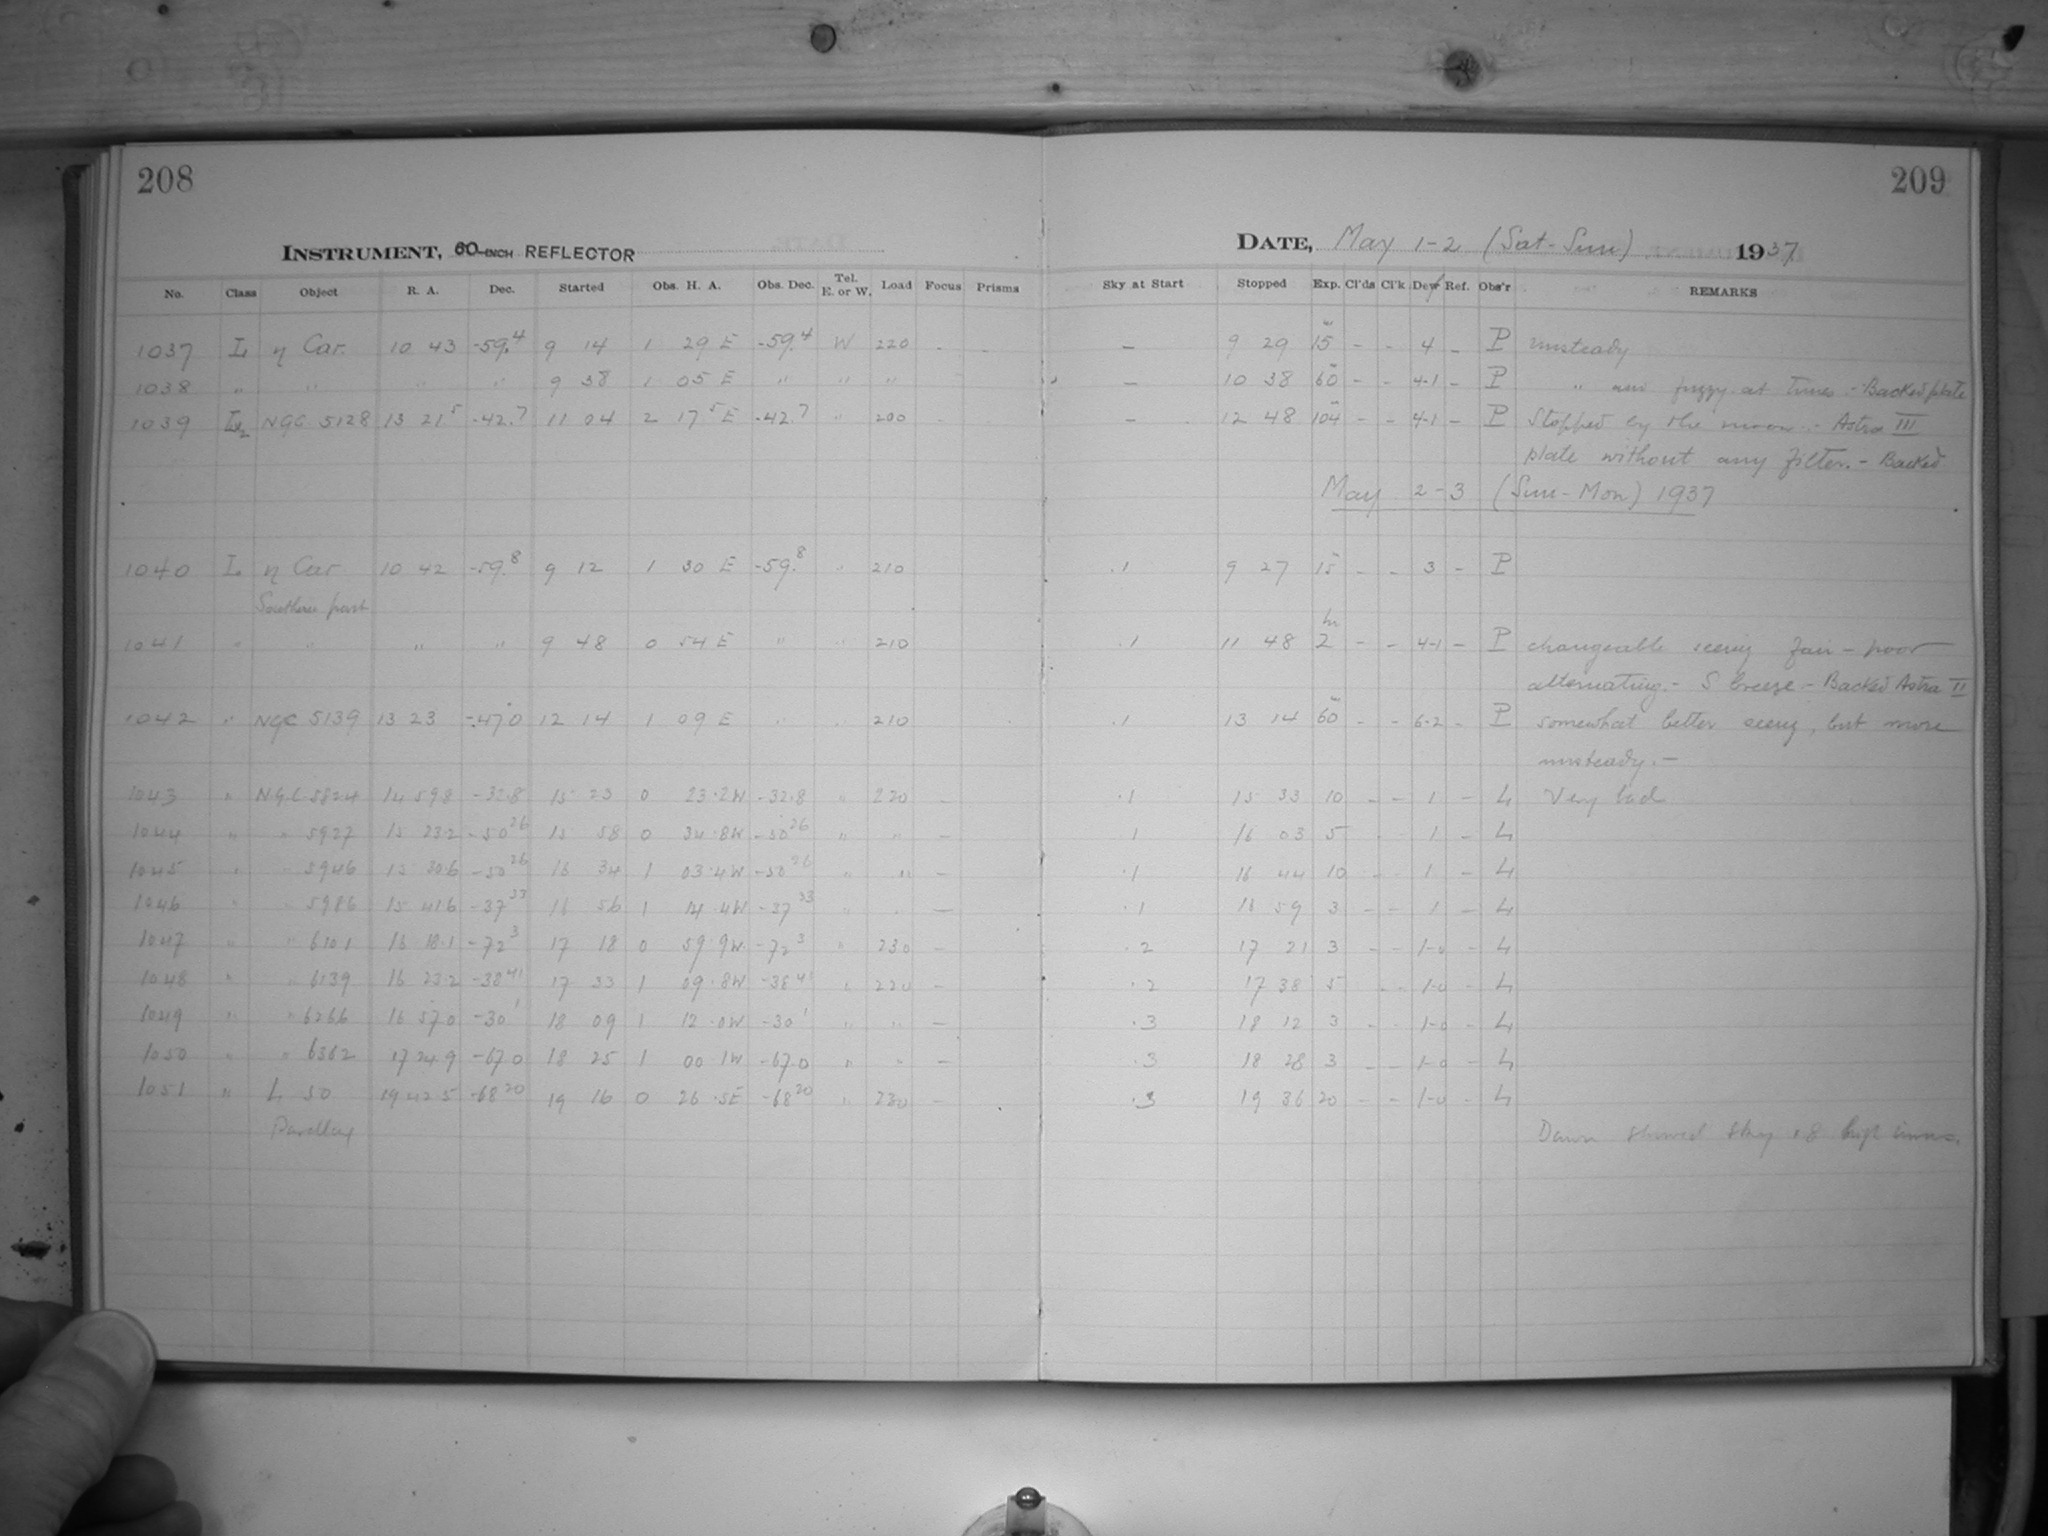 208
209
INSTRUMENT, 60-INCH REFLECTOR
DATE, May 1-2 (Sat-Sun) 1937
No. Class Object R. A. Dec. Started Obs. H. A. Obs. Dec. Tel. E. or W. Load Focus Prisms Sky at Start Stopped Exp. Cl'ds Cl'k Dew Ref. Obs'r REMARKS
1037 L η Car. 10 43 -59.4 9 14 1 29 E -59.4 W 220 - - - 9 29 15 m - - 4 - P unsteady
1038 " " " " 9 38 1 05 E " " " - 10 38 60 m - - 4-1 - P " and fuzzy at times - Backed plate
1039 NGC 5128 13 21.5 -42.7 11 04 2 17.5 E -42.7 " 200 - 12 48 104 m - - 4-1 - P Stopped by the moon. - Astra III
plate without any filter. - Backed
May 2-3 (Sun-Mon) 1937
1040 L η Car 10 42 -59.8 9 12 1 30 E -59.8 " 210 .1 9 27 15 m - - 3 - P
Southern part
1041 " " " " 9 48 0 54 E " " 210 .1 11 48 2 hr - - 4-1 - P changeable seeing fair - poor
alternating. - S breeze - Backed Astra II
1042 " NGC 5139 13 23 -47.0 12 14 1 09 E " " 210 .1 13 14 60 m - - 6-2 - P somewhat better seeing, but more
unsteady. -
1043 " NGC 5824 14 59.8 -32.8 15 23 0 23.2W -32.8 " 220 - .1 15 33 10 - - 1 - L Very bad
1044 " " 5927 15 23.2 -50 26 15 58 0 34.8W -50 26 " " - .1 16 03 5 1 - L
1045 " " 5946 15 30.6 -50 26 16 34 1 03.4W -50 26 " " - .1 16 44 10 1 - L
1046 " " 5986 15 41.6 -37 33 16 56 1 14.4W -37 33 " " - .1 16 59 3 - - 1 - L
1047 " " 6101 16 18.1 -72 3 17 18 0 59.9W -72 3 " 230 - .2 17 21 3 - - 1-0 - L
1048 " " 6139 16 23.2 -38 41 17 33 1 09.8W -38 41 " 220 - .2 17 38 5 - - 1-0 - L
1049 " " 6266 16 57.0 -30 1 18 09 1 12.0W -30 1 " " - .3 18 12 3 - 1-0 - L
1050 " " 6362 17 24.9 -67.0 18 25 1 00.1W -67.0 " " - .3 18 28 3 - - 1-0 - L
1051 " L 50 19 42.5 -68 20 19 16 0 26.5E -68 20 " 230 - .3 19 36 20 - - 1-0 - L
Parallax
Dawn showed sky .8